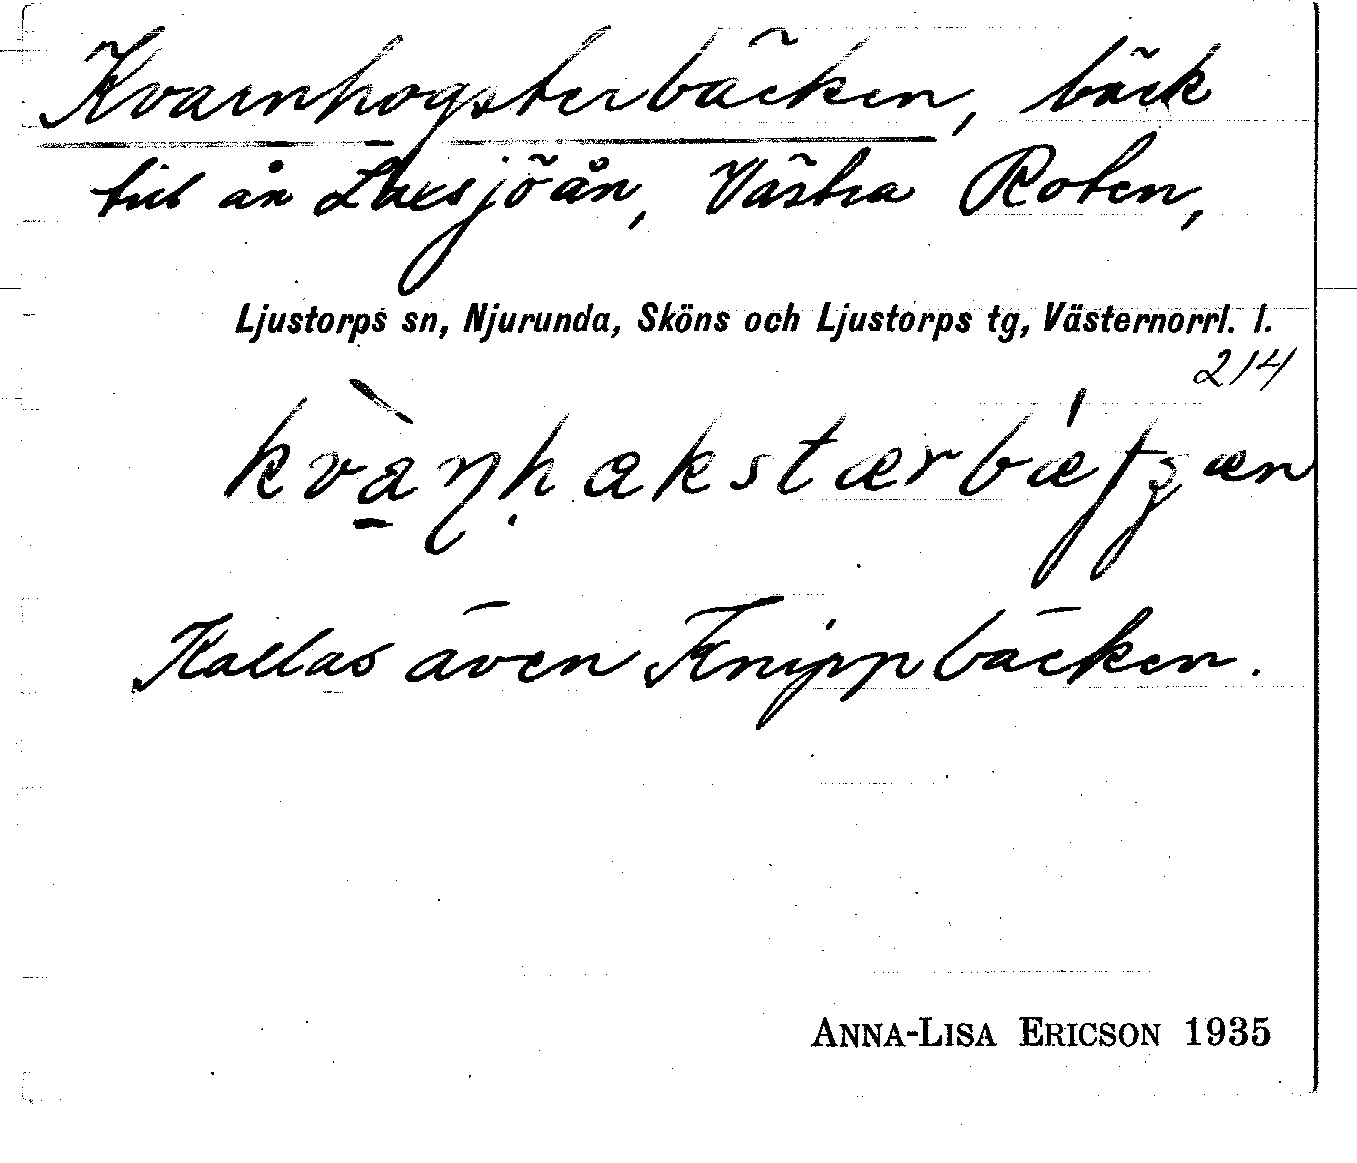 Kvarnhogsterbäcken, bäck
till ån Laxsjöån, Västra Roten,
Ljustorps sn, Njurunda, Sköns och Ljustorps tg, Västernorrl. l.
214
Kallas även Knippbäcken.
ANNA-LISA ERICSON 1935